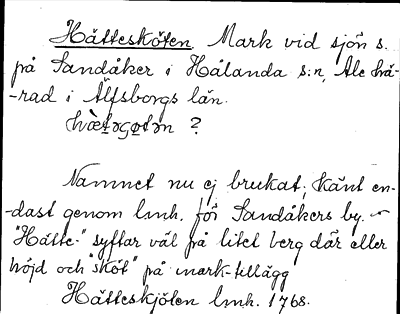 Håttesköten. Mark vid sjön s.
på Sandåker i Hålanda s:n, Ale hä-
-rad i Älfsborgs län.
?
Namnet nu ej brukat; känt en-
-dast genom lmh. för Sandåkers by.
"Håtte-" syftar väl på litet berg där eller
höjd och "sköt" på mark-tillägg
Håtteskjöten lmh. 1768.